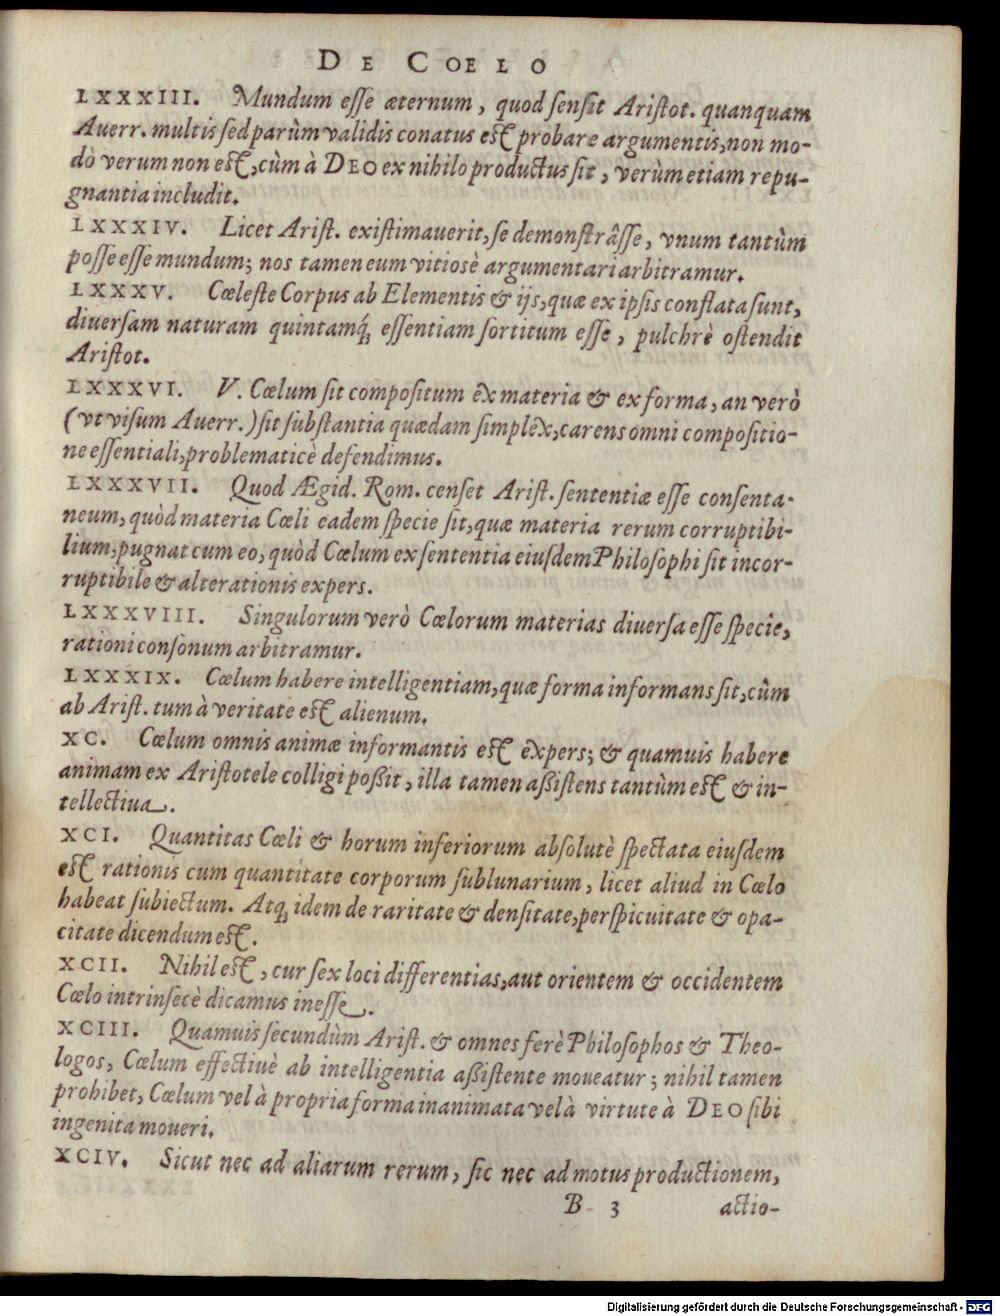 DE COELO
LXXXIII. Mundum esse æternum, quod sensit Aristot. quanquam
Auerr. multis sed parùm validis conatus est probare argumentis, non mo-
dò verum non est, cùm à DEO ex nihilo productus sit, verùm etiam repu-
gnantia includit.
LXXXIV. Licet Arist. existimauerit, se demonstrâsse, vnum tantùm
posse esse mundum; nos tamen eum vitiosè argumentari arbitramur.
LXXXV. Cœleste Corpus ab Elementis & ijs, quæ ex ipsis conflata sunt,
diuersam naturam quintamq́; essentiam sortitum esse, pulchrè ostendit
Aristot.
LXXXVI. V. Cœlum sit compositum ex materia & ex forma, an verò
(vt visum Auerr.) sit substantia quædam simplex, carens omni compositio-
ne essentiali, problematicè defendimus.
LXXXVII. Quod Ægid. Rom. censet Arist. sententiæ esse consenta-
neum, quòd materia Cœli eadem specie sit, quæ materia rerum corruptibi-
lium, pugnat cum eo, quòd Cœlum ex sententia eiusdem Philosophi sit incor-
ruptibile & alterationis expers.
LXXXVIII. Singulorum verò Cœlorum materias diuersa esse specie,
rationi consonum arbitramur.
LXXXIX. Cœlum habere intelligentiam, quæ forma informans sit, cûm
ab Arist. tum à veritate est alienum.
XC. Cœlum omnis animæ informantis est expers; & quamuis habere
animam ex Aristotele colligi poßit, illa tamen aßistens tantùm est & in-
tellectiua.
XCI. Quantitas Cœli & horum inferiorum absolutè spectata eiusdem
est rationis cum quantitate corporum sublunarium, licet aliud in Cœlo
habeat subiectum. Atq; idem de raritate & densitate, perspicuitate & opa-
citate dicendum est.
XCII. Nihil est, cur sex loci differentias, aut orientem & occidentem
Cœlo intrinsecè dicamus inesse.
XCIII. Quamuis secundùm Arist. & omnes ferè Philosophos & Theo-
logos, Cœlum effectiuè ab intelligentia aßistente moueatur; nihil tamen
prohibet, Cœlum vel à propria forma inanimata vel à virtute à DEO sibi
ingenita moueri.
XCIV. Sicut nec ad aliarum rerum, sic nec ad motus productionem,
B 3 actio-
Digitalisierung gefördert durch die Deutsche Forschungsgemeinschaft - DFG